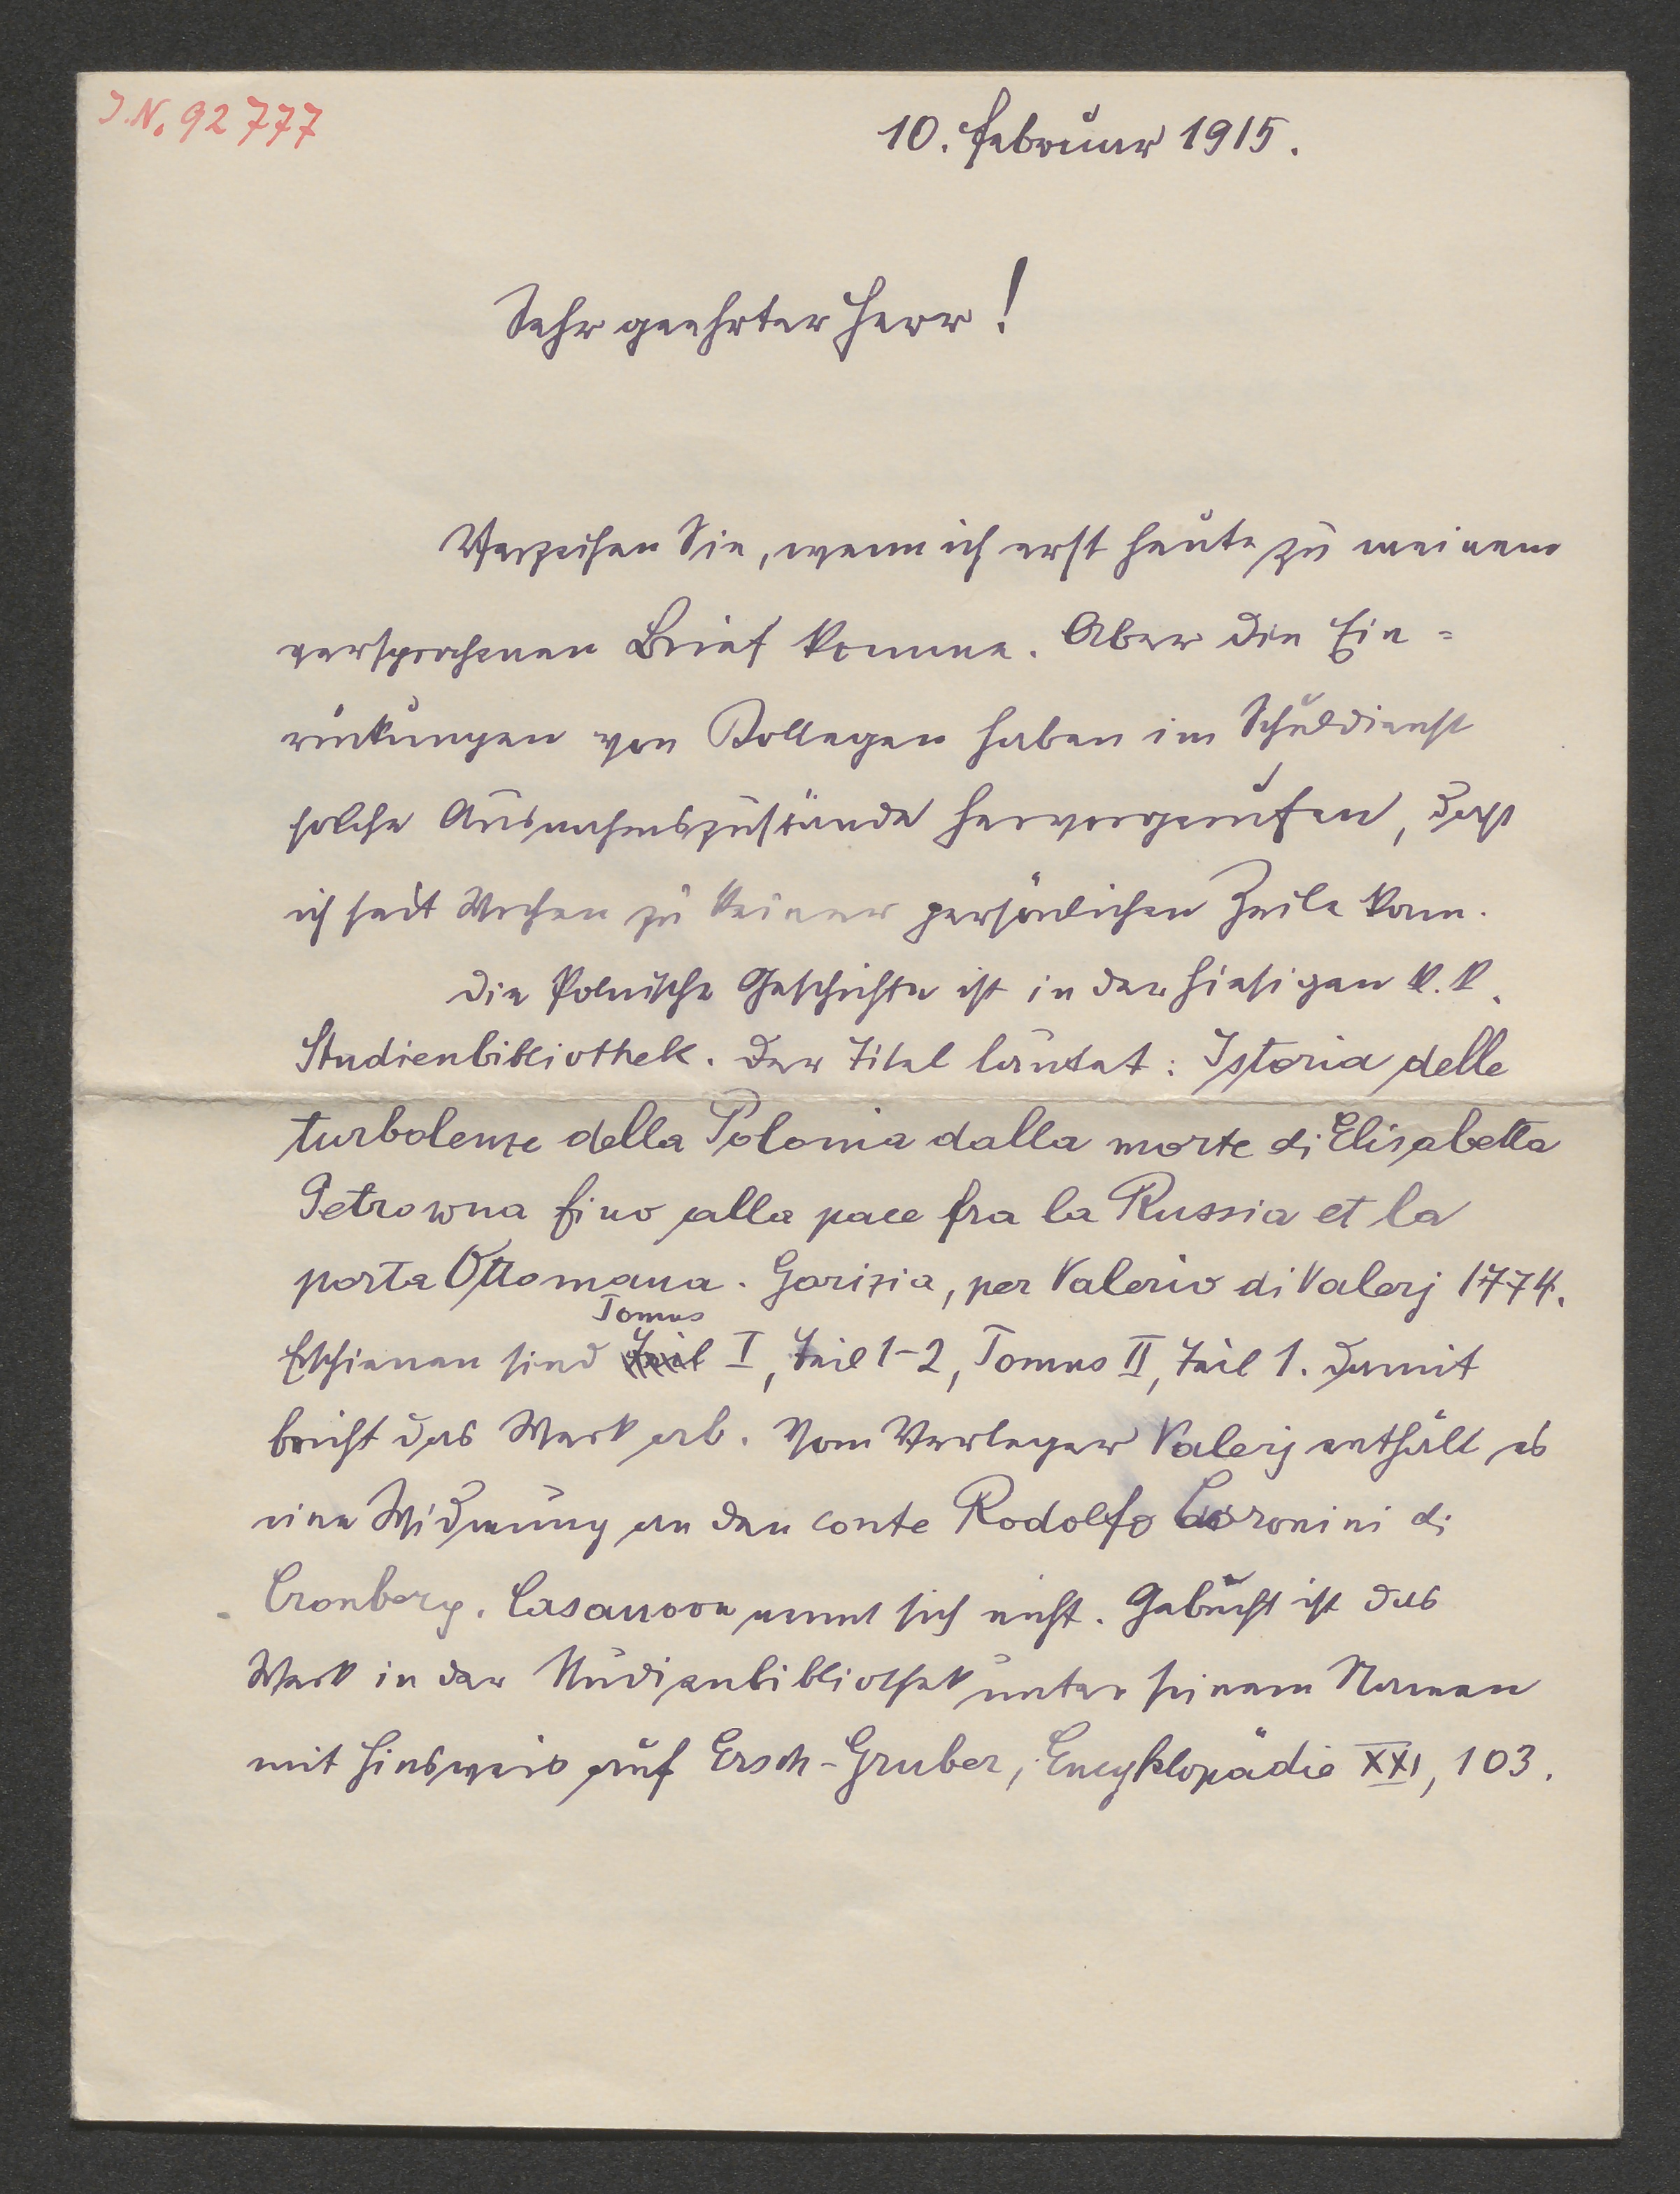 I.N. 92777
10. Februar 1915.
Sehr geehrter Herr!
Verzeihen Sie, wenn ich erst heute zu meinem
versprochenen Brief komme. Aber die Ein-
rückungen von Kollegen haben im Schuldienst
solche Ausnahmszustände hervorgerufen, dass
ich seit Wochen zu keiner persönlichen Zeile kam.
Die Polnische Geschichte ist in der hiesigen k.k.
Studienbibliothek. Der Titel lautet: Istoria delle
turbolenze della Polonia dalla morte di Elisabetta
Petrowna fino alla pace fra la Russia et la
porta Ottomana. Gorizia, per Valerio di Valerj 1774.
Erschienen sind Tomus I, Teil 1-2, Tomus II, Teil 1. Damit
bricht das Werk ab. Vom Verleger Valerj enthält es
eine Widmung an den conte Rodolfo Coronini di
Cronberg. Casanova nennt sich nicht. Gebucht ist das
Werk in der Studienbibliothek unter seinem Namen
mit Hinsweis auf Ersch-Gruber, Encyklopädie XXI, 103.